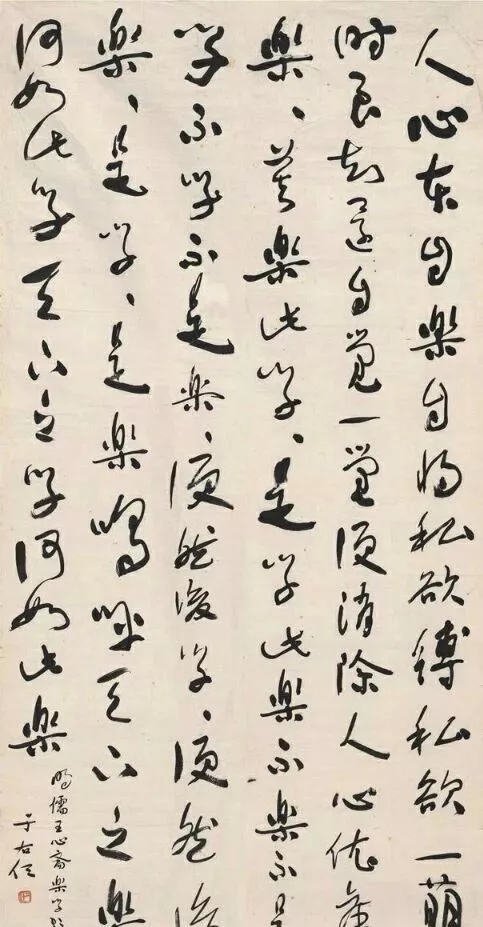 人心本自樂自將私欲縛私欲一萌
時良知還自覺一覺便消除人心依舊
樂、樂此學、是學此樂不樂不是
學不學不是樂、便然後學、便然後
樂、是學、是樂嗚呼天下之樂
何如此學天下之學何如此樂
明儒王心齋樂學歌
于右任